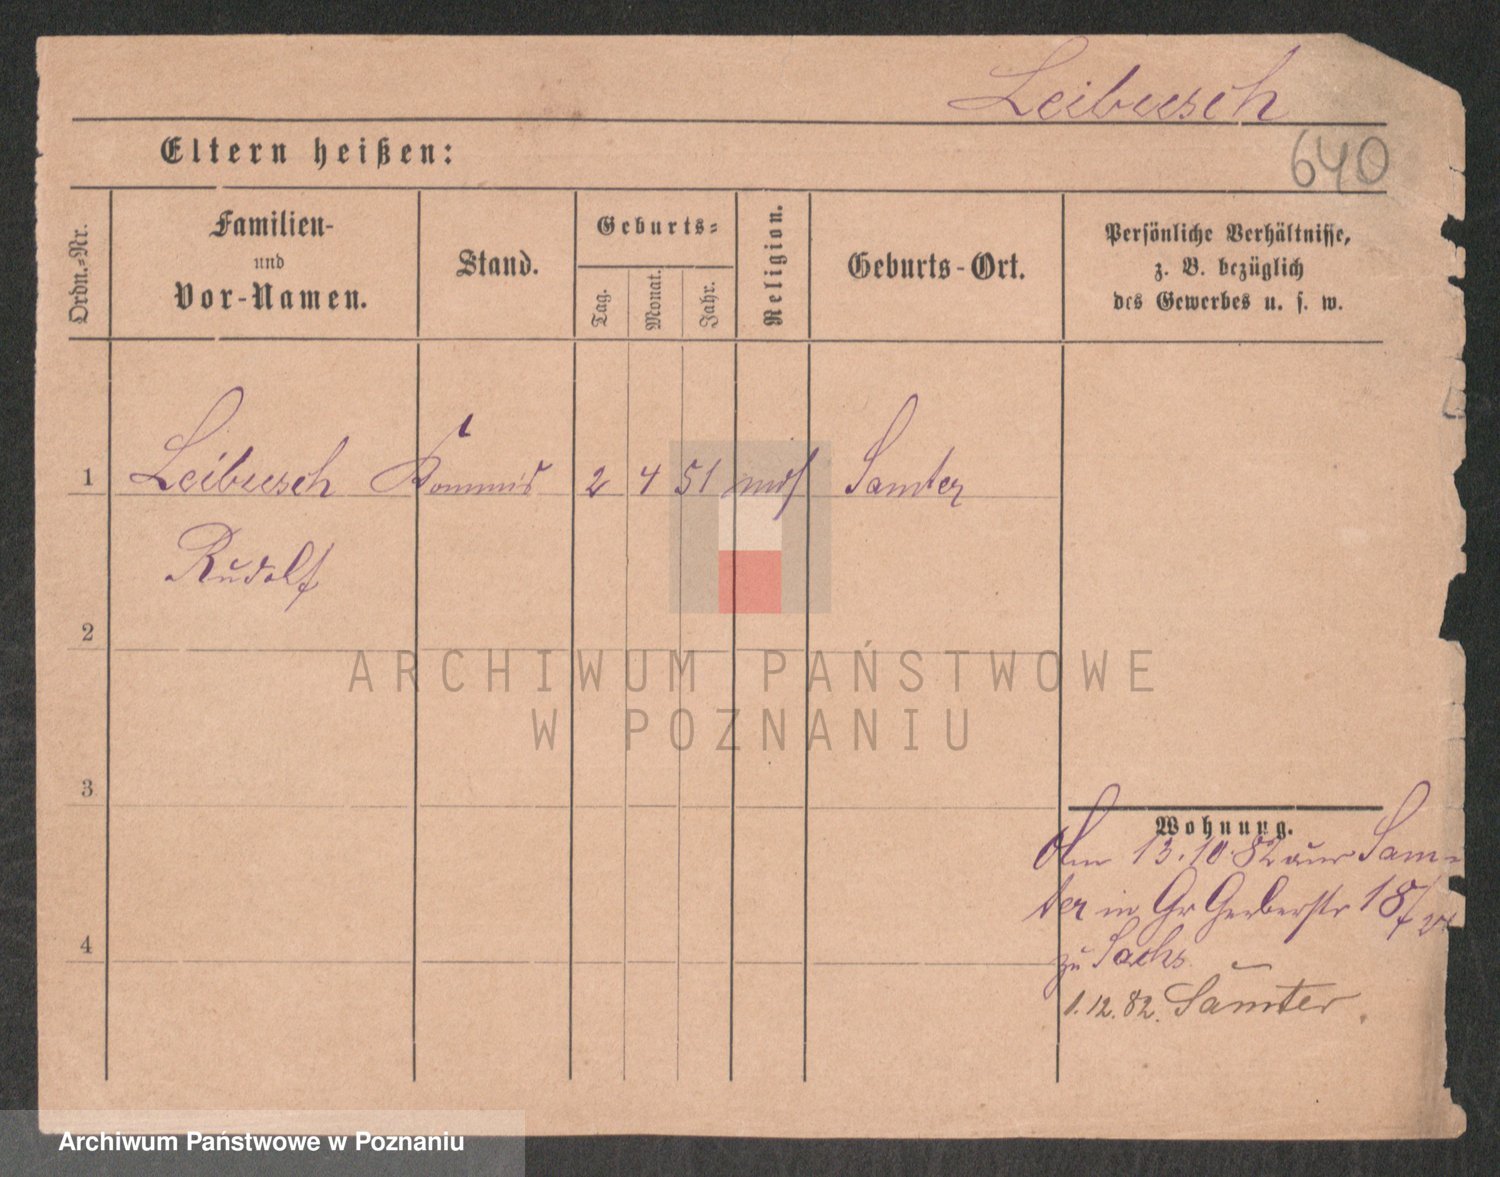 Leibusch
640
Eltern heißen:
Ordn.-Nr.
Familien-
und
Vor-Namen.
Stand.
Geburts-
Tag.
Monat.
Jahr.
Religion.
Geburts-Ort.
Persönliche Verhältnisse,
z. B. bezüglich
des Gewerbes u. s. w.
1 Leibusch Kommis 2 4 51 mos Samter
Rudolf
2
ARCHIWUM PAŃSTWOWE
W POZNANIU
3
Wohnung.
Am 13.10.82 aus Sam-
ter in Gr Gerberstr 18/
zu Sachs
4
1.12.82. Samter
Archiwum Państwowe w Poznaniu